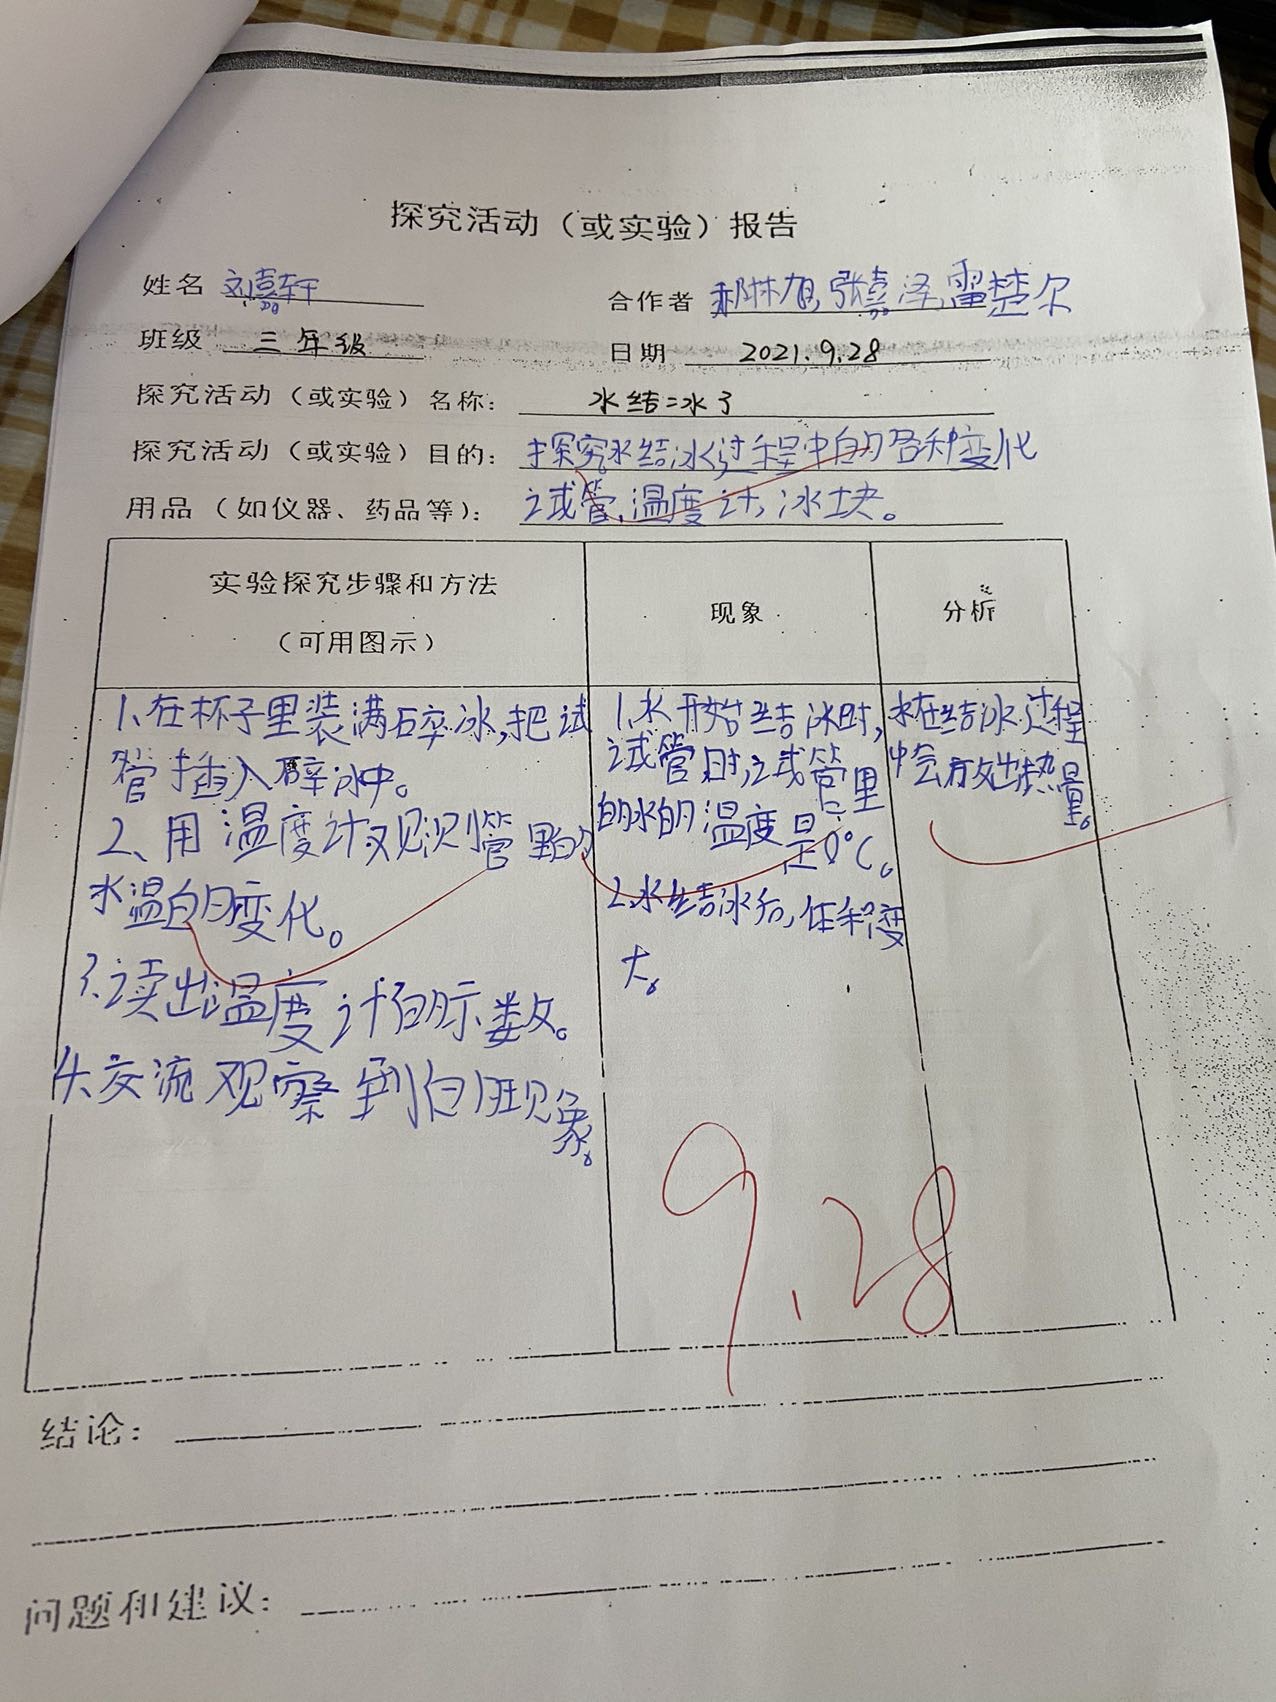 探究活动（或实验）报告
姓名 刘嘉轩 合作者 郝林旭,张嘉泽,雷楚尔
班级 三年级 日期 2021.9.28
探究活动（或实验）名称： 水结冰了
探究活动（或实验）目的： 探究水结冰过程中的各种变化
用品（如仪器、药品等）： 试管,温度计,冰块。
实验探究步骤和方法
（可用图示）
现象
分析
1、在杯子里装满碎冰,把试
管插入碎冰中。
2、用温度计观测管里的
水温的变化。
3.读出温度计的示数。
4.交流观察到的现象。
1.水开始结冰时,
试管时,试管里
的水的温度是0℃。
2.水结冰后,体积变
大。
水在结冰过程
中会放出热量。
9.28
结论：
问题和建议：